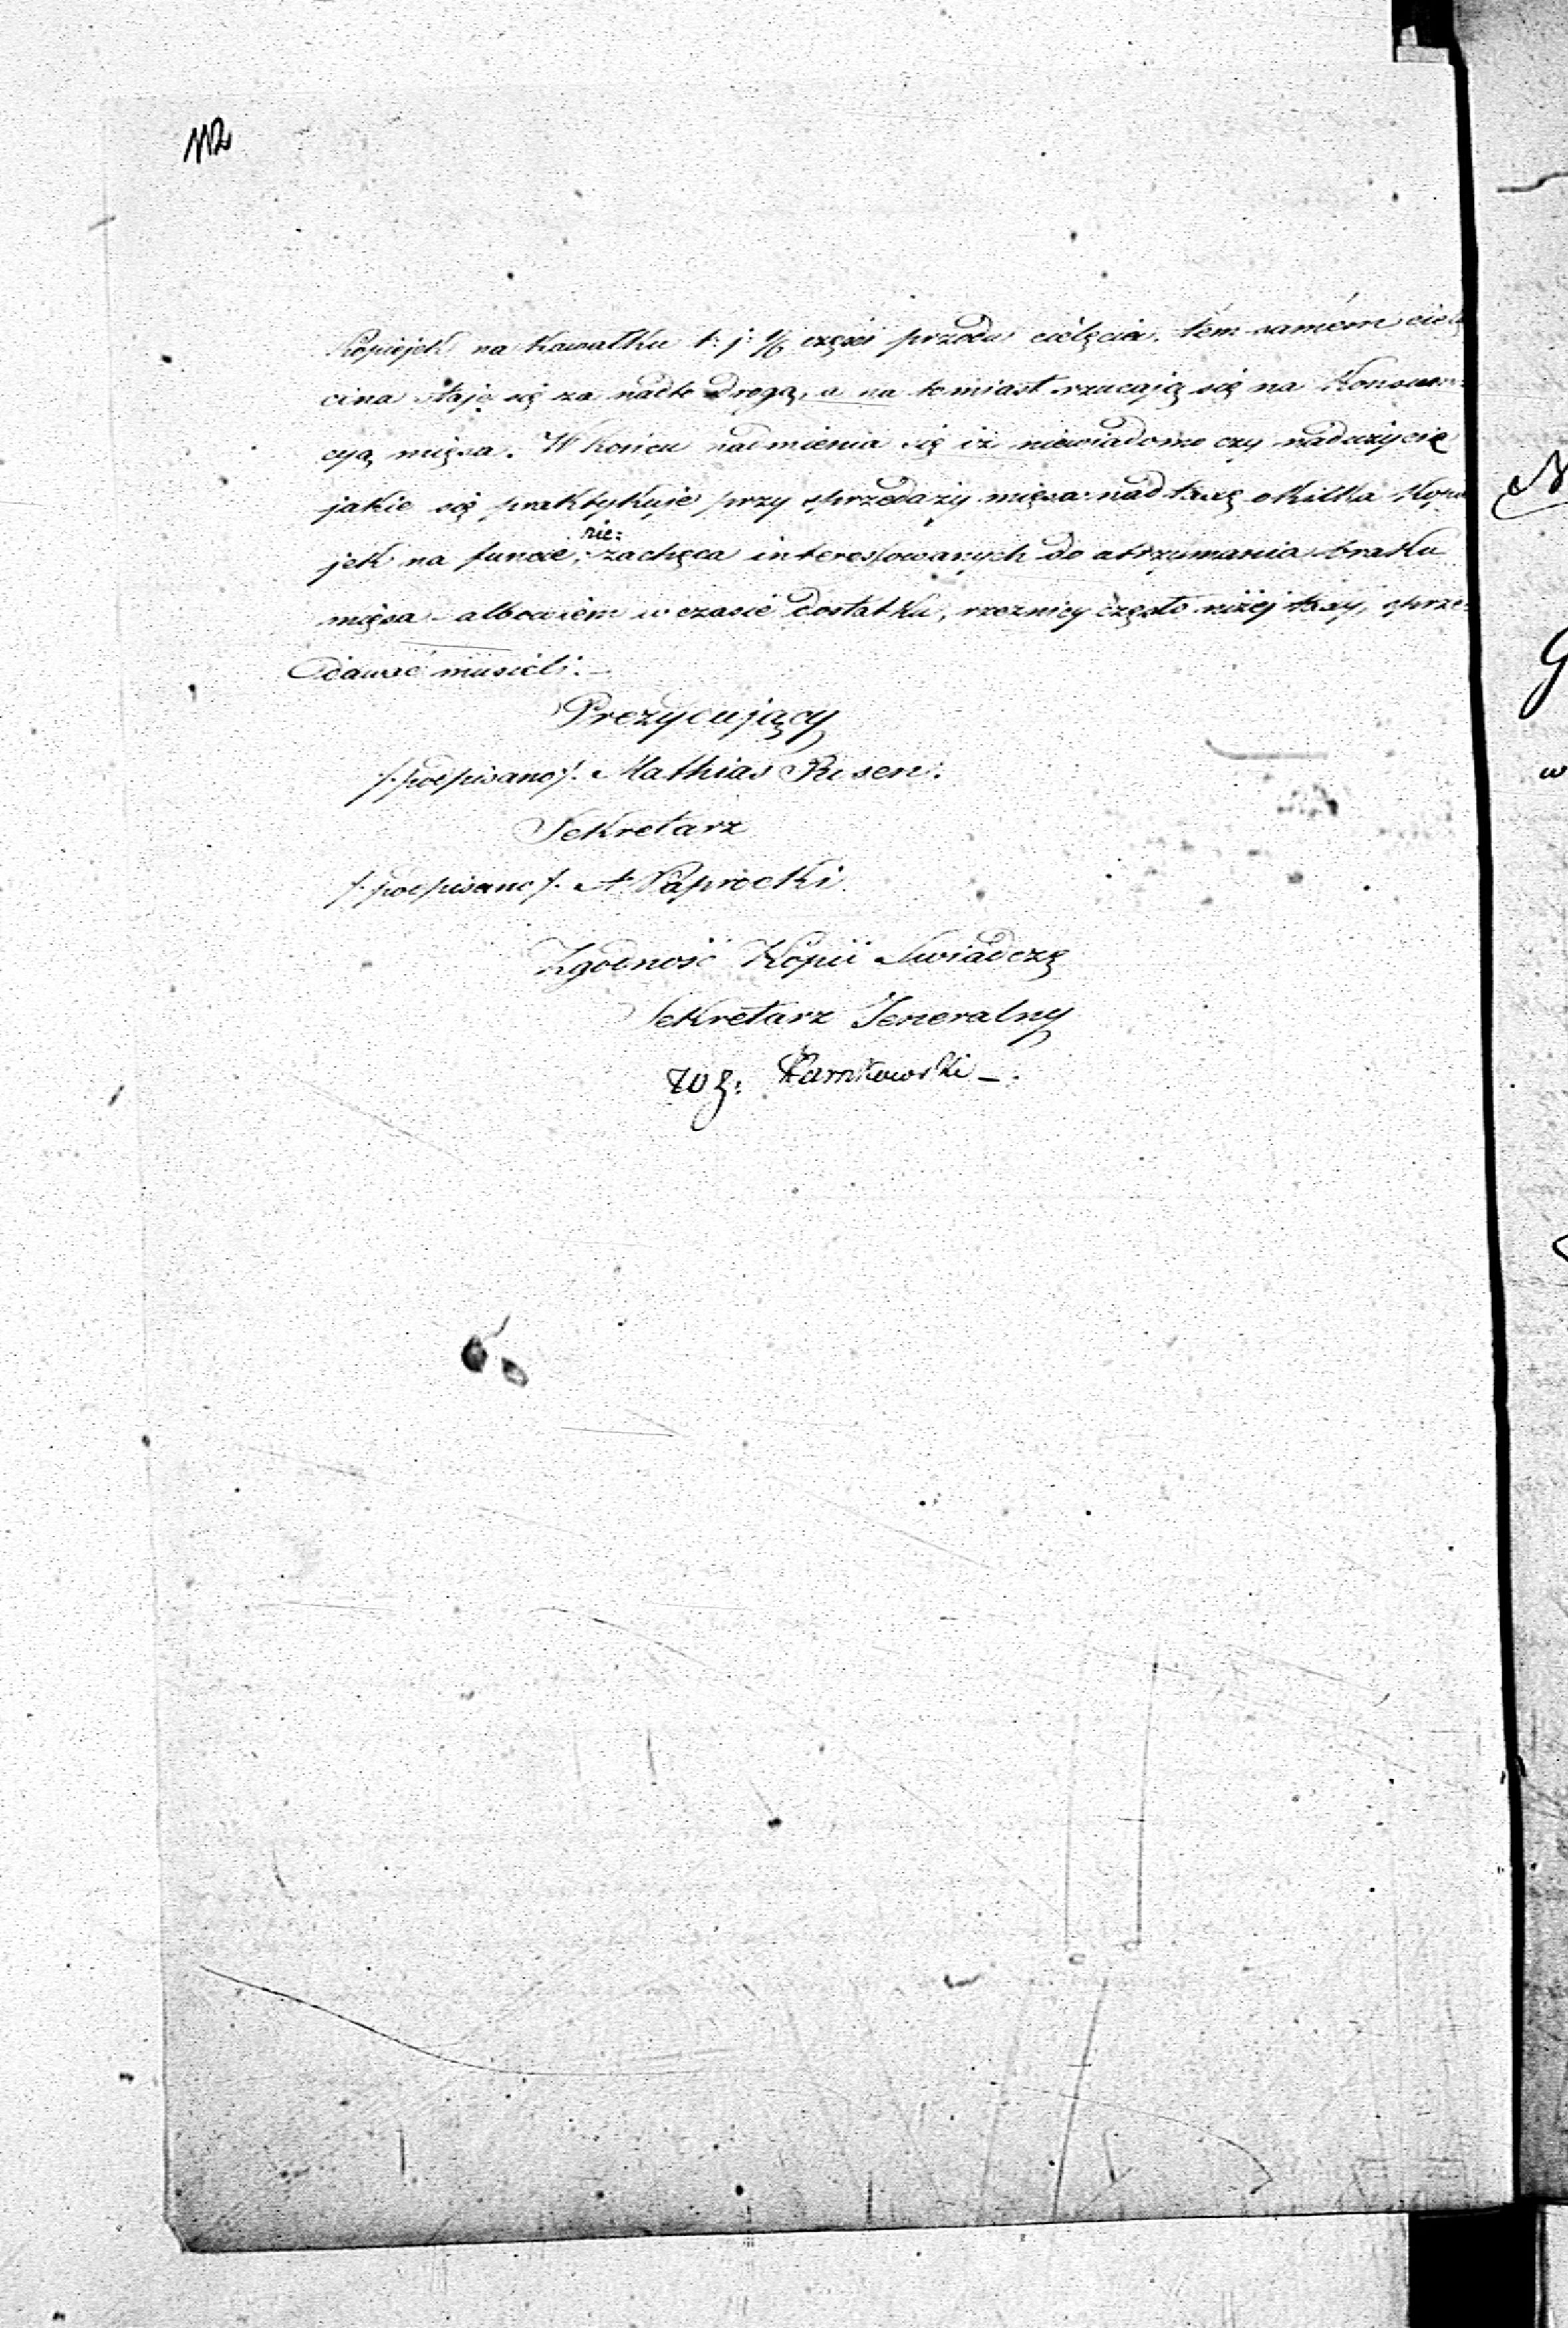 112
Kopiejek na kawałku t: j: 1/6 części przodu cielęcia, tém samém cielę
cina staje się za nadto drogą, a na to miast rzucają się na Konsum=
cyą mięsa. W końcu nadmienia się iż niewiadomo czy nadużycie
jakie się praktykuje przy sprzedaży mięsa nad taxę o kilka Kopie
jek na funcie, nie= zachęca interessowanych do utrzymania braku
mięsa – albowiem w czasie dostatku, rzeznicy często niżéj taxy, sprze=
dawać musieli. –
Prezydujący
/. podpisano /. Mathias Rosen.
Sekretarz
/. podpisano /. A. Paprocki
Zgodność Kopii Swiadczę
Sekretarz Jeneralny